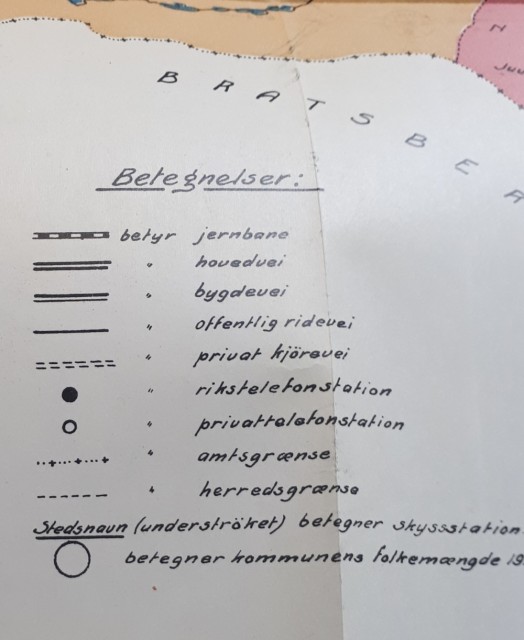 N
BRATSBER
Betegnelser:
betyr jernbane
" hovedvei
" bygdevei
" offentlig ridevei
" privat kjörevei
" rikstelefonstation
" privattelefonstation
" amtsgrænse
" herredsgrænse
Stedsnavn (underströket) betegner skyssstation
betegner kommunens folkemængde 19